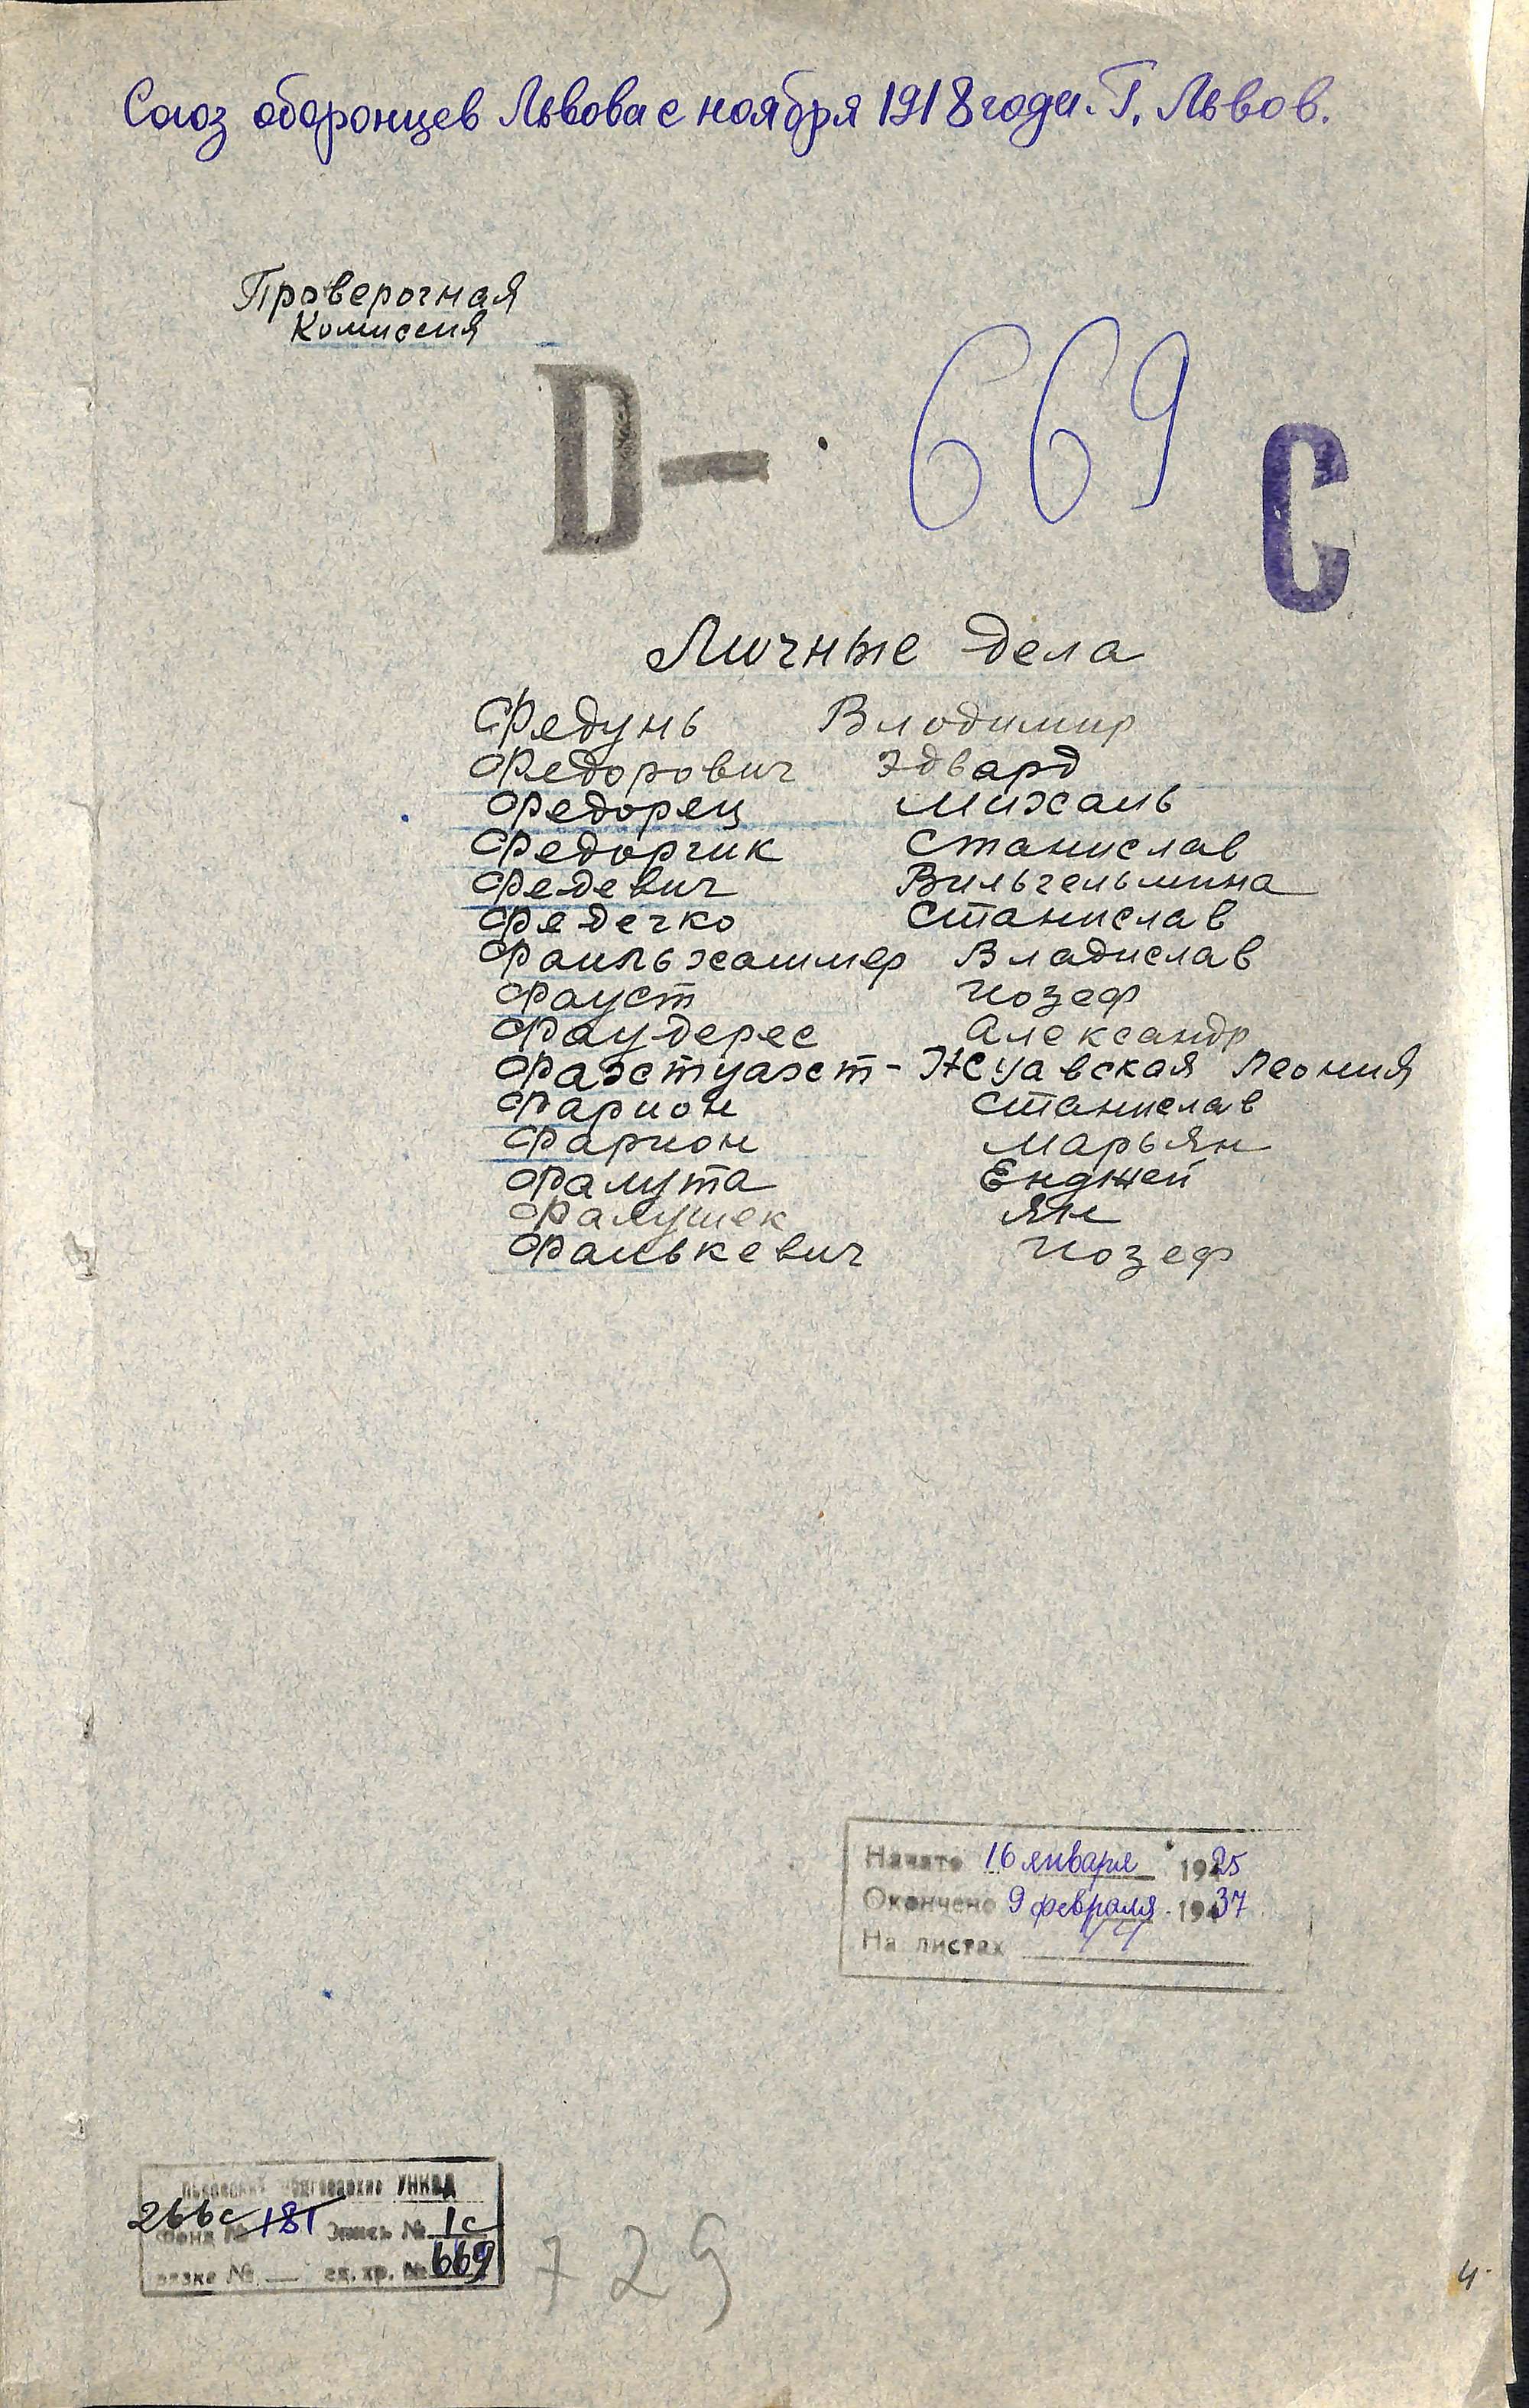 Союз оборонцев Львова с ноября 1918 года. Г. Львов.
Проверочная
Комиссия
D— 669
С
Личные дела
Федунь Влодимир
Федорович Эдвард
Федорец Михаль
Федорчик Станислав
Федевич Вильгельмина
Федечко Станислав
Фаильхаммер Владислав
Фауст Иозеф
Фаудерес Александр
Леония
Фарион Станислав
Фарион Марьян
Фалута Енджей
Фалушек Ян
Фалькевич Иозеф
Начато 16 января 1925
Окончено 9 февраля 1937
На листах 44
УНКВД
266с
Фонд № 181 Опись № 1с
вязка № — ед. хр. № 669
729
4